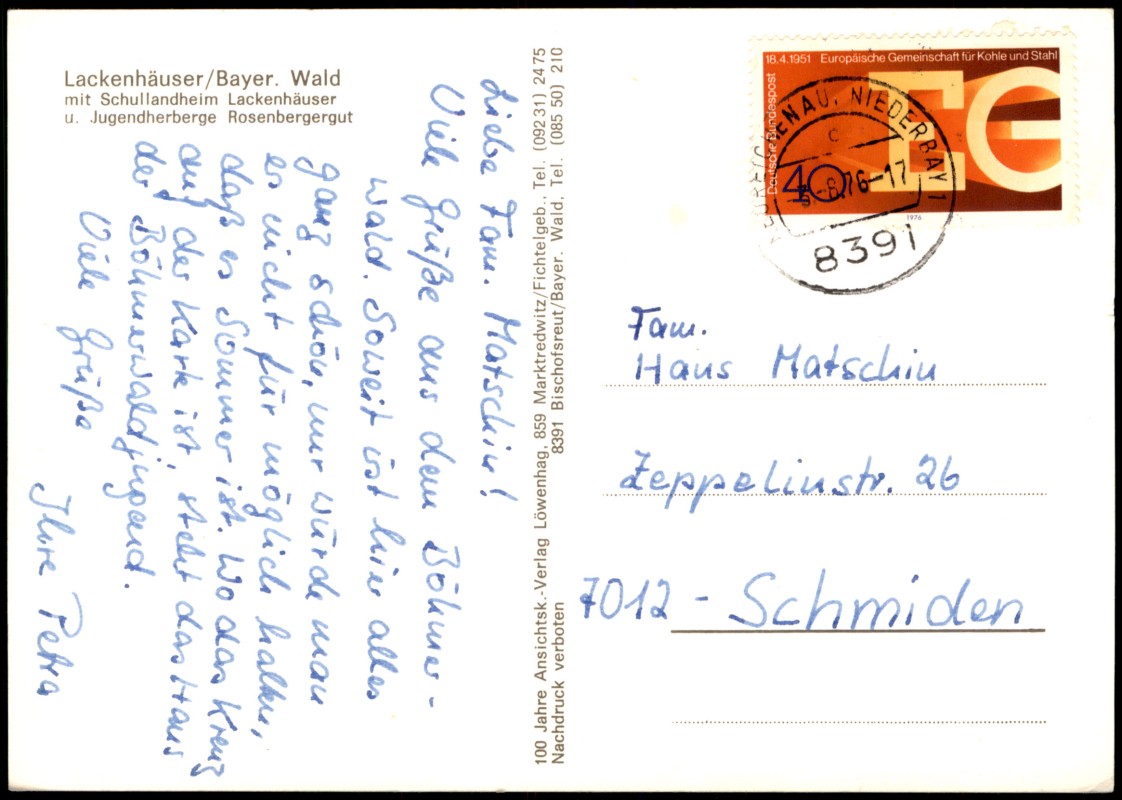 Lackenhäuser/Bayer. Wald
mit Schullandheim Lackenhäuser
u. Jugendherberge Rosenbergergut
Liebe Fam. Matschin!
Viele Grüße aus dem Böhmer-
wald. Soweit ist hier alles
ganz schön, nur würde man
es nicht für möglich halten,
daß es Sommer ist. Wo das Kreuz
auf der Karte ist, steht das Haus
der Böhmerwaldjugend.
Viele Grüße
Ihre Petra
100 Jahre Ansichtsk.-Verlag Löwenhag, 859 Marktredwitz/Fichtelgeb., Tel. (092 31) 24 75
8391 Bischofsreut/Bayer. Wald, Tel. (085 50) 210
Nachdruck verboten
18.4.1951 Europäische Gemeinschaft für Kohle und Stahl
Deutsche Bundespost
EG
40
1976
NEUREICHENAU, NIEDERBAY 1
c
-8.76-17
8391
Fam.
Hans Matschin
Zeppelinstr. 26
7012 - Schmiden